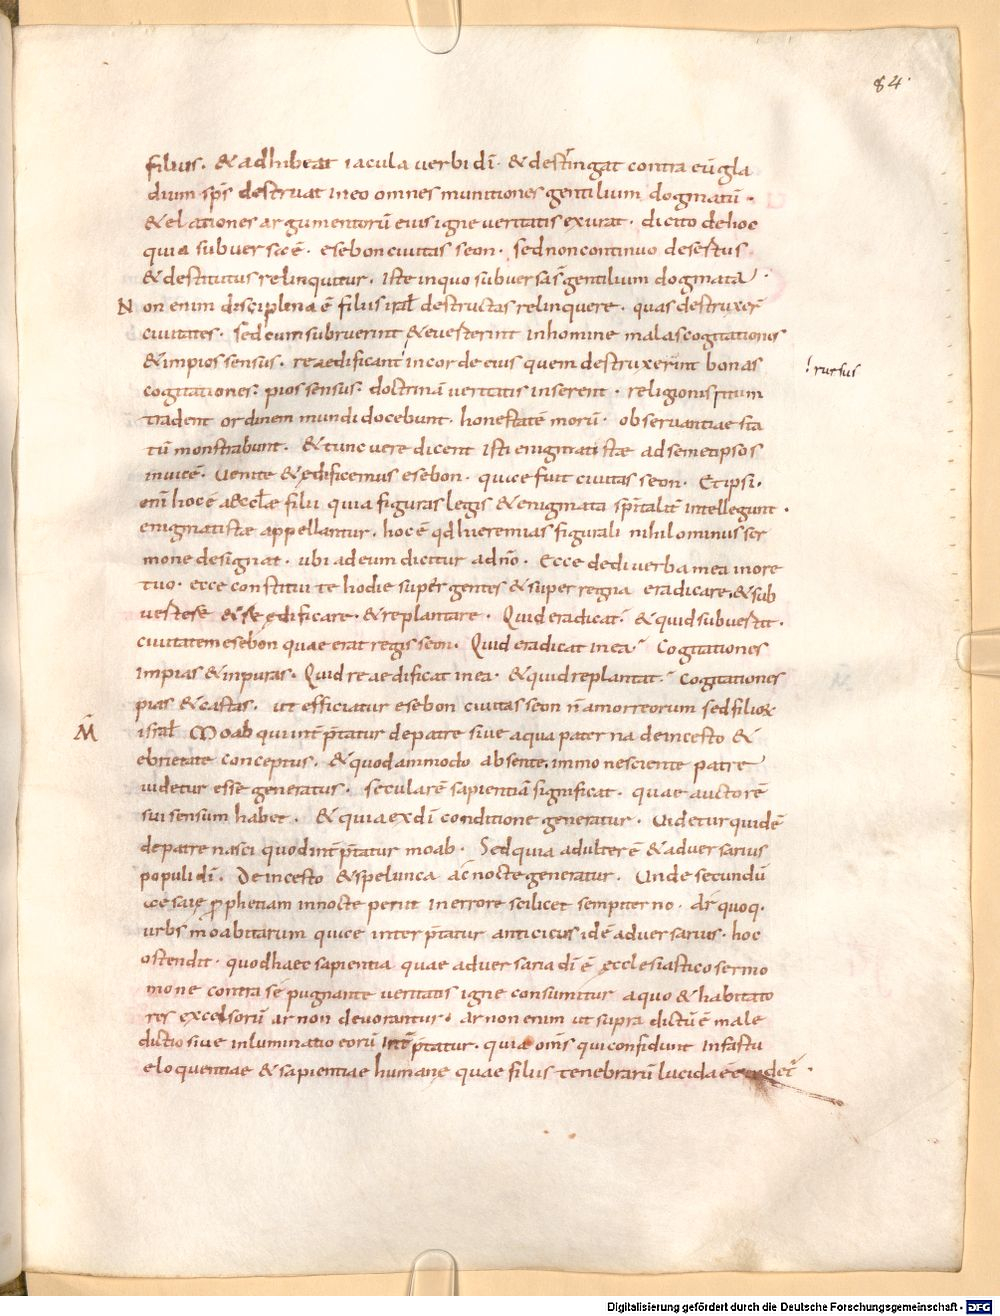 84.
filius. & adhibeat iacula uerbi dī. & destringat contra eū gla
dium sps̄ destruat in eo omnes munitiones gentilium dogmatū.
& elationes argumentorū eius igne ueritatis exurat. dicito de hoc
quia subuersa ē. esebon ciuitas seon. sed non continuo desertus
& destitutus relinquitur. iste in quo subuersa s̄ gentilium dogmata.
Non enim disciplina ē filiis isrl̄ destructas relinquere. quas destruxer̄
ciuitates. sed cum subruerint & euerterint in homine malas cogitationis
& impios sensus. reaedificant in corde eius quem destruxerint bonas
! rursus
cogitationes. pios sensus. doctrinā ueritatis inserent. religionis ritum
tradent ordinem mundi docebunt. honestatē morū. obseruantiae sta
tū monstrabunt. & tunc uere dicent isti enigmatistae ad semetipsos
inuicē. Uenite & edificemus esebon. quae fuit ciuitas seon. Et ipsi.
eni hoc ē aeccl̄ae filii quia figuras legis & enigmata spiritalit̄ intellegunt.
enigmatistae appellantur. hoc ē qđ hieremias figurali nihilominus ser
mone designat. ubi ad eum dicitur a dn̄o. Ecce dedi uerba mea in ore
tuo. ecce constitui te hodie super gentes & super regna eradicare. & sub
uertere & reędificare. & replantare. Quid eradicat? & quid subuertit.
ciuitatem esebon quae erat regis seon. Quid eradicat in ea? Cogitationes
impias & inpuras. Quid reaedificat in ea. & quid replantat? Cogitationes
pias & castas. ut efficiatur esebon ciuitas seon n̄ amorreorum sed filiorum
M̄
israhl̄ Moab qui int̄p̄tatur de patre siue aqua paterna de incesto &
ebrietate conceptus. & quodammodo absente, immo nesciente patre
uidetur esse generatus. secularē sapientiā significat. quae auctorē
sui sensum habet. & quia ex dī conditione generatur. Uidetur quidē
de patre nasci quod int̄p̄tatur moab. Sed quia adulter ē & aduersarius
populi dī. De incesto & spelunca ac nocte generatur. Unde secundū
esaię prophetiam in nocte perit in errore scilicet sempiterno. Ar̄ quoq.
urbs moabitarum quae interp̄tatur anticicus idē aduersarius. hoc
ostendit. quod haec sapientia quae aduersaria dī ē ecclesiastico sermo
mone contra se pugnante ueritatis igne consumitur a quo & habitato
res excelsorū arnon deuorantur. arnon enim ut supra dictū ē male
dictio siue inluminatio eorū int̄p̄tatur. quia om̄s qui confidunt in fastu
eloquentiae & sapientiae humanę quae filiis tenebrarū lucida ēē
Digitalisierung gefördert durch die Deutsche Forschungsgemeinschaft - DFG